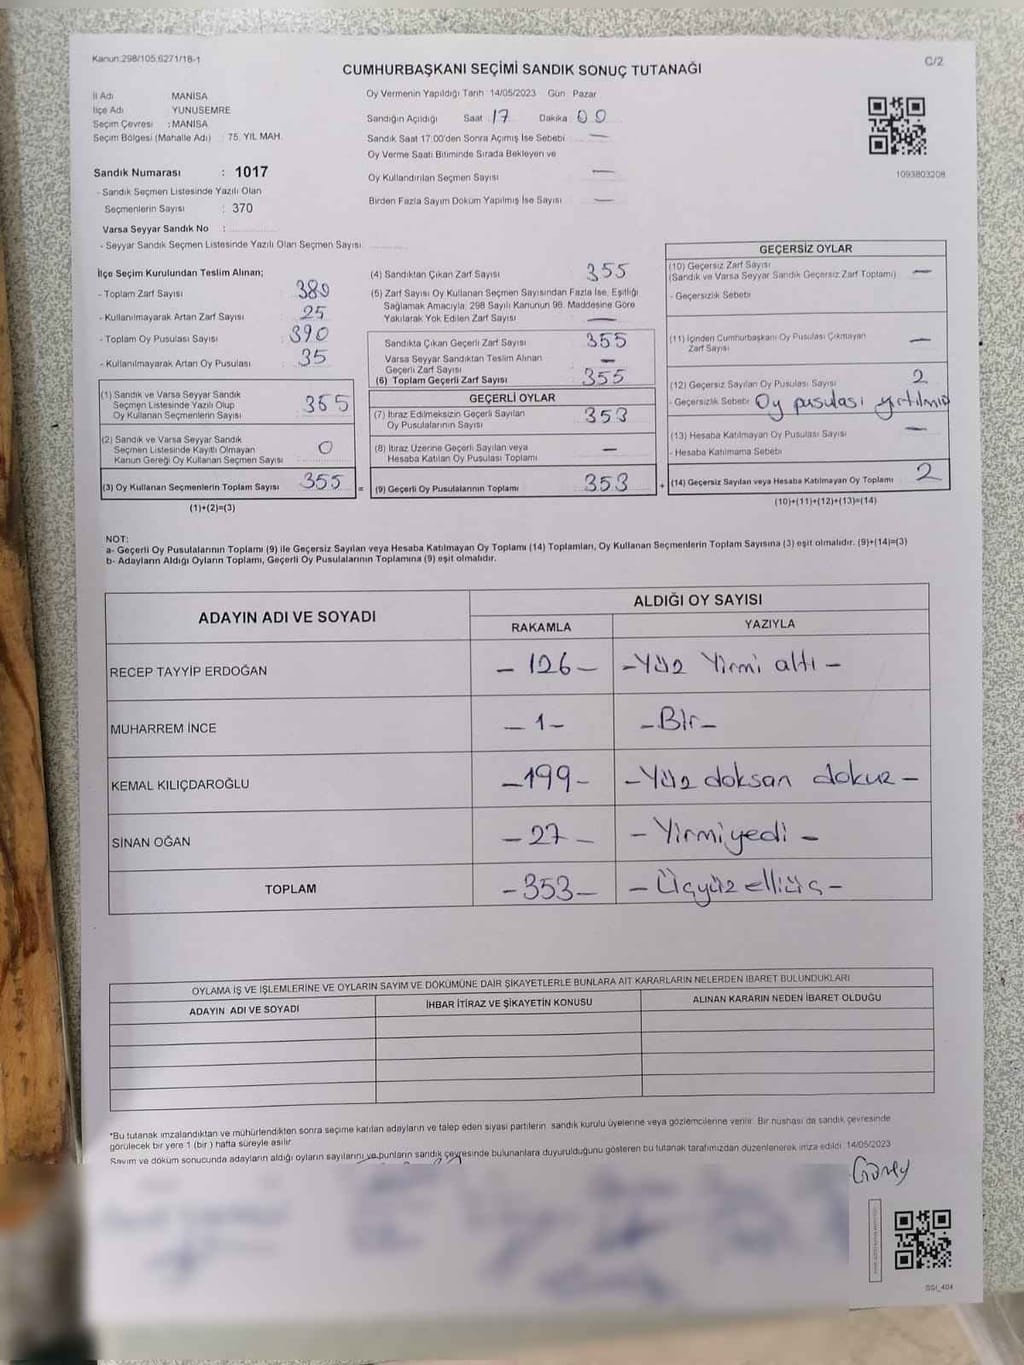 Kanun:298/105,6271/18-1
C/2
CUMHURBAŞKANI SEÇİMİ SANDIK SONUÇ TUTANAĞI
İl Adı MANİSA
İlçe Adı YUNUSEMRE
Seçim Çevresi : MANİSA
Seçim Bölgesi (Mahalle Adı) : 75. YIL MAH.
Sandık Numarası : 1017
- Sandık Seçmen Listesinde Yazılı Olan
Seçmenlerin Sayısı : 370
Varsa Seyyar Sandık No :
- Seyyar Sandık Seçmen Listesinde Yazılı Olan Seçmen Sayısı
Oy Vermenin Yapıldığı Tarih 14/05/2023 Gün Pazar
Sandığın Açıldığı Saat 17 Dakika 00
Sandık Saat 17.00'den Sonra Açımış İse Sebebi —
Oy Verme Saati Bitiminde Sırada Bekleyen ve
Oy Kullandırılan Seçmen Sayısı —
Birden Fazla Sayım Döküm Yapılmış İse Sayısı —
1093803208
İlçe Seçim Kurulundan Teslim Alınan;
- Toplam Zarf Sayısı 380
- Kullanılmayarak Artan Zarf Sayısı 25
- Toplam Oy Pusulası Sayısı 390
- Kullanılmayarak Artan Oy Pusulası 35
(1) Sandık ve Varsa Seyyar Sandık
Seçmen Listesinde Yazılı Olup
Oy Kullanan Seçmenlerin Sayısı 355
(2) Sandık ve Varsa Seyyar Sandık
Seçmen Listesinde Kayıtlı Olmayan
Kanun Gereği Oy Kullanan Seçmen Sayısı 0
(3) Oy Kullanan Seçmenlerin Toplam Sayısı 355 =
(1)+(2)=(3)
(4) Sandıktan Çıkan Zarf Sayısı 355
(5) Zarf Sayısı Oy Kullanan Seçmen Sayısından Fazla İse, Eşitliği
Sağlamak Amacıyla, 298 Sayılı Kanunun 98. Maddesine Göre
Yakılarak Yok Edilen Zarf Sayısı —
Sandıkta Çıkan Geçerli Zarf Sayısı 355
Varsa Seyyar Sandıktan Teslim Alınan
Geçerli Zarf Sayısı —
(6) Toplam Geçerli Zarf Sayısı 355
GEÇERLİ OYLAR
(7) İtiraz Edilmeksizin Geçerli Sayılan
Oy Pusulalarının Sayısı 353
(8) İtiraz Üzerine Geçerli Sayılan veya
Hesaba Katılan Oy Pusulası Toplamı —
(9) Geçerli Oy Pusulalarının Toplamı 353 +
GEÇERSİZ OYLAR
(10) Geçersiz Zarf Sayısı
(Sandık ve Varsa Seyyar Sandık Geçersiz Zarf Toplamı) —
- Geçersizlik Sebebi
(11) İçinden Cumhurbaşkanı Oy Pusulası Çıkmayan
Zarf Sayısı —
(12) Geçersiz Sayılan Oy Pusulası Sayısı 2
- Geçersizlik Sebebi Oy pusulası yırtılmış
(13) Hesaba Katılmayan Oy Pusulası Sayısı —
- Hesaba Katılmama Sebebi
(14) Geçersiz Sayılan veya Hesaba Katılmayan Oy Toplamı 2
(10)+(11)+(12)+(13)=(14)
NOT:
a- Geçerli Oy Pusulalarının Toplamı (9) ile Geçersiz Sayılan veya Hesaba Katılmayan Oy Toplamı (14) Toplamları, Oy Kullanan Seçmenlerin Toplam Sayısına (3) eşit olmalıdır. (9)+(14)=(3)
b- Adayların Aldığı Oyların Toplamı, Geçerli Oy Pusulalarının Toplamına (9) eşit olmalıdır.
ADAYIN ADI VE SOYADI
ALDIĞI OY SAYISI
RAKAMLA YAZIYLA
RECEP TAYYİP ERDOĞAN – 126 – – Yüz Yirmi altı –
MUHARREM İNCE – 1 – – Bir –
KEMAL KILIÇDAROĞLU – 199 – – Yüz doksan dokuz –
SİNAN OĞAN – 27 – – Yirmiyedi –
TOPLAM – 353 – – Üçyüz elliüç –
OYLAMA İŞ VE İŞLEMLERİNE VE OYLARIN SAYIM VE DÖKÜMÜNE DAİR ŞİKAYETLERLE BUNLARA AİT KARARLARIN NELERDEN İBARET BULUNDUKLARI
ADAYIN ADI VE SOYADI İHBAR İTİRAZ VE ŞİKAYETİN KONUSU ALINAN KARARIN NEDEN İBARET OLDUĞU
*Bu tutanak imzalandıktan ve mühürlendikten sonra seçime katılan adayların ve talep eden siyasi partilerin sandık kurulu üyelerine veya gözlemcilerine verilir. Bir nushası da sandık çevresinde
görülecek bir yere 1 (bir) hafta süreyle asılır.
Sayım ve döküm sonucunda adayların aldığı oyların sayılarını ve bunların sandık çevresinde bulunanlara duyurulduğunu gösteren bu tutanak tarafımızdan düzenlenerek imza edildi. 14/05/2023